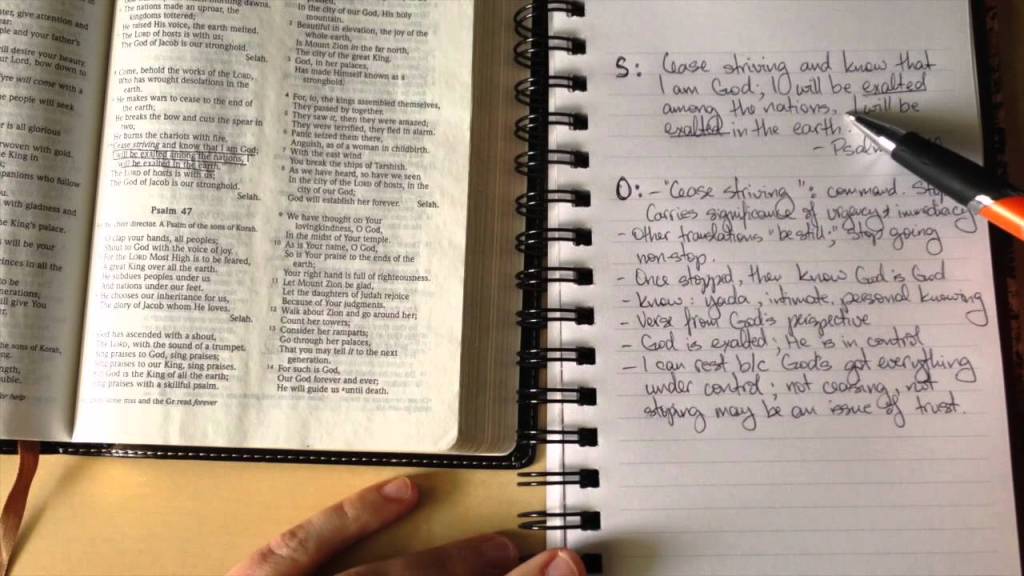 ter, give attention and
ear:
and your father's
ill desire your beauty.
ur Lord, bow down to
Tyre will come with a
he people will seek
er is all glorious
rwoven with gold.
he King in
k;
mpanions who follow
with gladness and
he King's palace.
s will be your
inces in all the
to be
enerations;
ill give You
ver.
he sons of Korah,
ngth,
ouble.
y help
The nations made an uproar, the
kingdoms tottered;
He raised His voice, the earth melted.
The LORD of hosts is with us;
The God of Jacob is our stronghold.
Selah.
Come, behold the works of the LORD,
Who has wrought desolations in the
earth.
He makes wars to cease to the end of
the earth;
He breaks the bow and cuts the spear in
two;
He burns the chariots with fire.
Cease striving and know that I am God;
I will be exalted among the nations, I
will be exalted in the earth.
The LORD of hosts is with us;
The God of Jacob is our stronghold.
Selah.
Psalm 47
director. A Psalm of the sons of Korah.
O clap your hands, all peoples;
Shout to God with the voice of joy.
For the LORD Most High is to be feared,
A great King over all the earth.
He subdues peoples under us
And nations under our feet.
He chooses our inheritance for us,
The glory of Jacob whom He loves.
Selah.
God has ascended with a shout,
The LORD, with the sound of a trumpet.
Sing praises to God, sing praises;
Sing praises to our King, sing praises.
God is the King of all the earth;
Sing praises with a skillful psalm.
mss and the Gr read forever
In the city of our God, His holy
mountain.
2 Beautiful in elevation, the joy of the
whole earth,
Is Mount Zion in the far north,
The city of the great King.
3 God, in her palaces,
Has made Himself known as a
stronghold.
4 For, lo, the kings assembled themselves,
They passed by together.
5 They saw it, then they were amazed;
They were terrified, they fled in alarm.
6 Panic seized them there,
Anguish, as of a woman in childbirth.
7 With the east wind
You break the ships of Tarshish.
8 As we have heard, so have we seen
In the city of the LORD of hosts, in the
city of our God;
God will establish her forever. Selah.
9 We have thought on Your
lovingkindness, O God,
In the midst of Your temple.
10 As is Your name, O God,
So is Your praise to the ends of the
earth;
Your right hand is full of righteousness.
11 Let Mount Zion be glad,
Let the daughters of Judah rejoice
Because of Your judgments.
12 Walk about Zion and go around her;
Count her towers;
13 Consider her ramparts;
Go through her palaces,
That you may tell it to the next
generation.
14 For such is God,
Our God forever and ever;
He will guide us until death.
S: Cease striving and know that
I am God; I will be exalted
among the nations, I will be
exalted in the earth.
- Psalm
O: - "Cease striving": command. Stop
Carries significance of urgency & immediacy
- Other translations "be still," stop going
non-stop.
- Once stopped, they know God is God
- Know: yada, intimate, personal knowing
- Verse from God's perspective
- God is exalted; He is in control
- I can rest b/c God's got everything
under control; not ceasing, not
stoping may be an issue of trust.